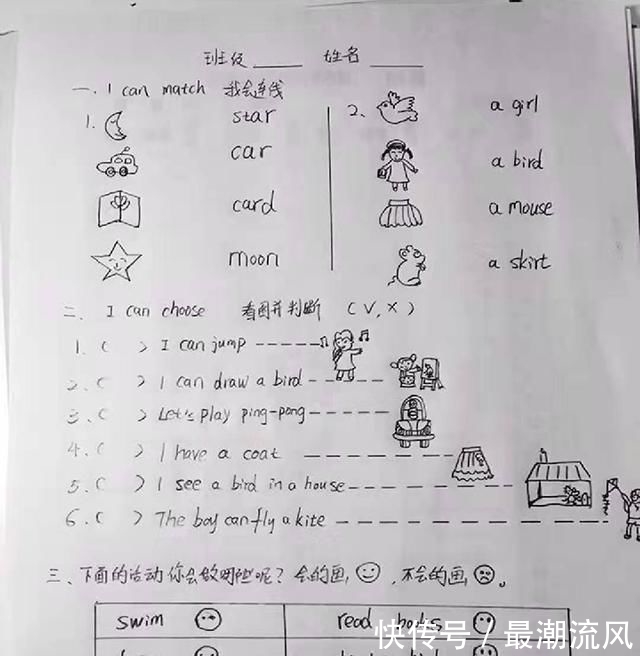 班级____ 姓名____
一. I can match 我会连线
1. star
car
card
moon
2、 a girl
a bird
a mouse
a skirt
二、 I can choose 看图并判断 (√,×)
1. ( ) I can jump
2. ( ) I can draw a bird
3. ( ) Let's play ping-pong
4. ( ) I have a coat
5. ( ) I see a bird in a house
6. ( ) The boy can fly a kite
三、下面的活动你会做哪些呢? 会的画, 不会的画。
swim read books
快传号 / 最潮流风